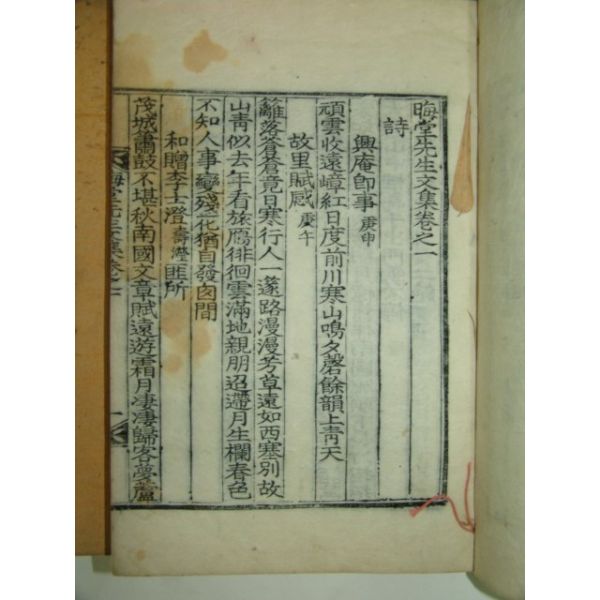 晦堂先生文集卷之一
詩
興庵卽事 庚申
頑雲收遠嶂紅日度前川寒山鳴夕磬餘韻上靑天
故里賦感 庚午
籬落蒼蒼竟日寒行人一邃路漫漫芳草遠如西塞別故
山靑似去年看旅鴈徘徊雲滿地親朋迢遰月生欄春色
不知人事變殘花猶自發
和贈李士澄 壽瀅 匪所
茂城簫鼓不堪秋南國文章賦遠遊霜月凄凄歸客夢